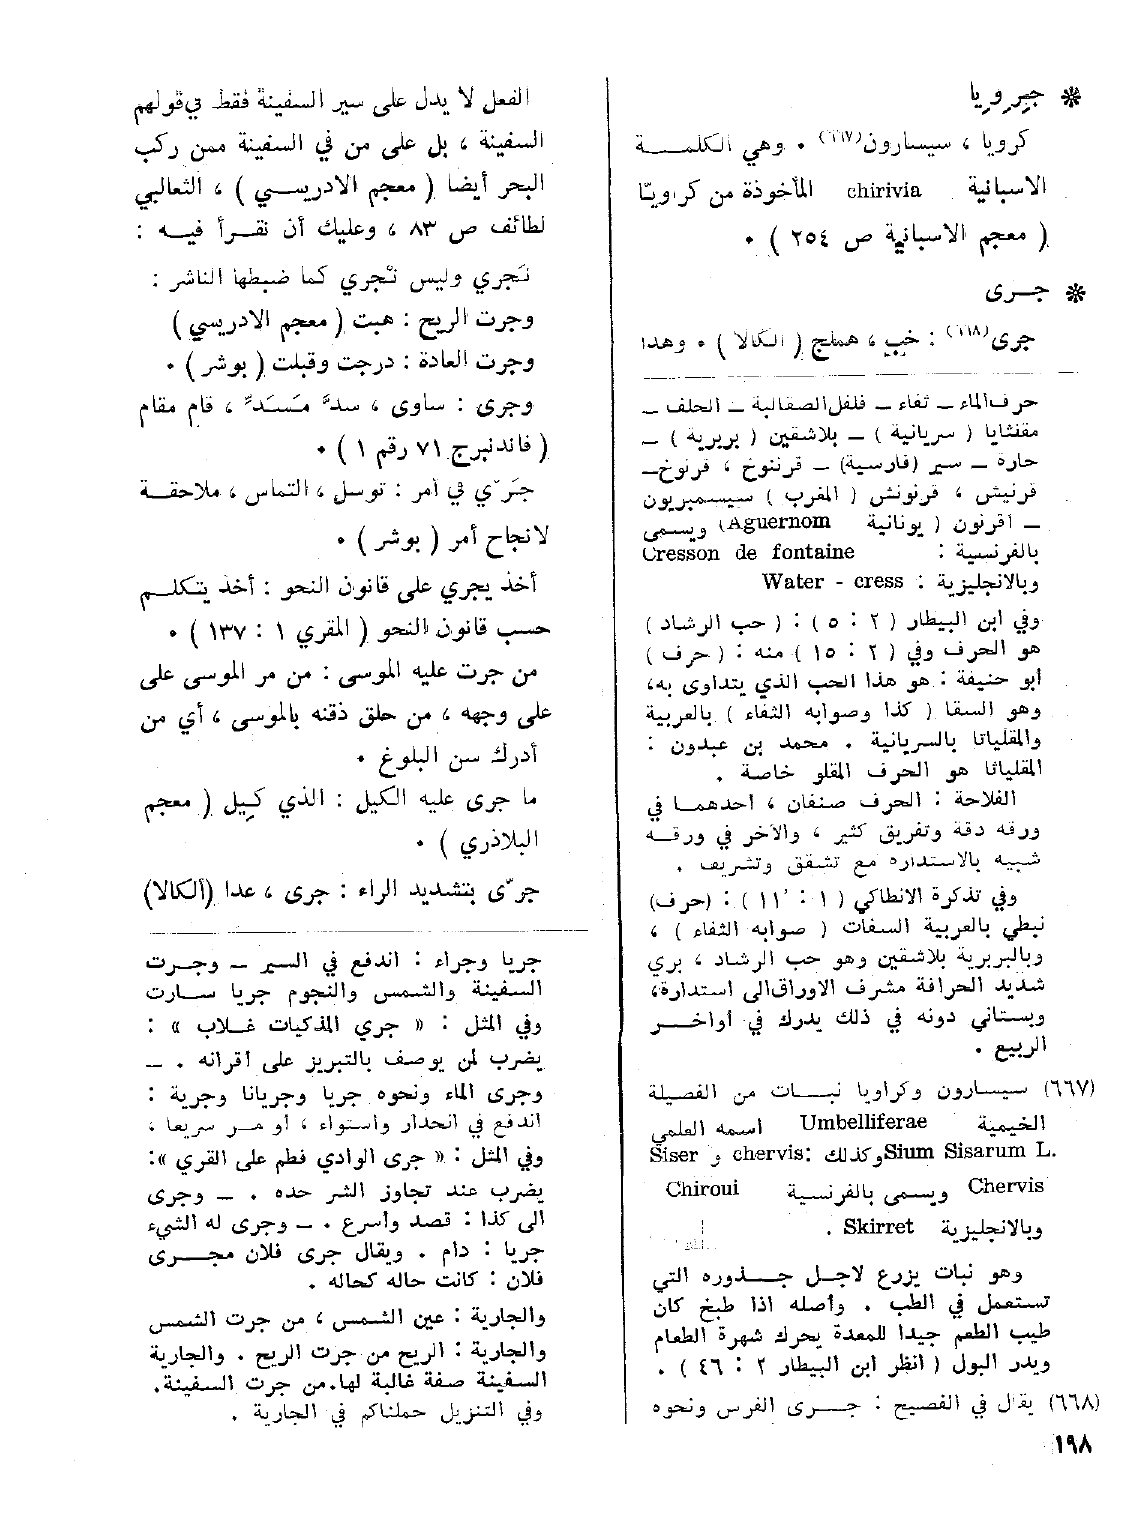 * جِرِوِيا
كرويا ، سيسارون(٦٦٧) ٠ وهي الكلمـــــة
الاسبانية chirivia المأخوذة من كراويّا
( معجم الاسبانية ص ٢٥٤ ) ٠
* جـرى
جرى(٦٦٨) : خبب ، هملج ( الكالا ) ٠ وهـذا
حرف الماء ــ تفاء ــ فلفل الصقالبة ــ الحلف ــ
مقنثايا ( سريانية ) ــ بلاشقين ( بربرية ) ــ
حاره ــ سير (فارسية) ــ قرننوخ ، قرنوخ ــ
قرنيش ، قرنونش ( المغرب ) سيسمبريون
ــ اقرنون ( يونانية Aguernom) ويسمى
بالفرنسية : Cresson de fontaine
وبالانجليزية : Water - cress
وفي ابن البيطار ( ٢ : ٥ ) : ( حب الرشاد )
هو الحرف وفي ( ٢ : ١٥ ) منه : ( حرف )
أبو حنيفة : هو هذا الحب الذي يتداوى به،
وهو السقا ( كذا وصوابه الثفاء ) بالعربية
والمقلياثا بالسريانية . محمد بن عبدون :
المقلياثا هو الحرف المقلو خاصة .
الفلاحة : الحرف صنفان ، احدهمـا في
ورقه دقة وتفريق كثير ، والآخر في ورقــه
شبيه بالاستداره مع تشقق وتشريف .
وفي تذكرة الانطاكي ( ١ : ١١ ) : (حرف)
نبطي بالعربية السفات ( صوابه الثفاء ) ،
وبالبربرية بلاشقين وهو حب الرشاد ، بري
شديد الحرافة مشرف الاوراق الى استدارة،
وبستاني دونه في ذلك يدرك في أواخــر
الربيع .
(٦٦٧) سيسارون وكراويا نبـات من الفصيلة
الخيمية Umbelliferae اسمه العلمي
Sium Sisarum L. وكذلك :chervis و Siser
Chervis ويسمى بالفرنسية Chiroui
وبالانجليزية Skirret .
وهو نبات يزرع لاجـل جـذوره التي
تستعمل في الطب . وأصله اذا طبخ كان
طيب الطعم جيدا للمعدة يحرك شهرة الطعام
ويدر البول ( انظر ابن البيطار ٢ : ٤٦ ) .
(٦٦٨) يقال في الفصيح : جـرى الفرس ونحوه
الفعل لا يدل على سير السفينة فقط في قولهم
السفينة ، بل على من في السفينة ممن ركب
البحر أيضا ( معجم الادريسـي ) ، الثعالبي
لطائف ص ٨٣ ، وعليك أن نقـرأ فيـه :
تَجري وليس تُجري كما ضبطها الناشر :
وجرت الريح : هبت ( معجم الادريسي )
وجرت العادة : درجت وقبلت ( بوشر ) ٠
وجرى : ساوى ، سدَّ مَسَدَّ ، قام مقام
( فاندنبرج ٧١ رقم ١ ) ٠
جَرْي في أمر : توسل ، التماس ، ملاحقـة
لانجاح أمر ( بوشر ) ٠
أخذ يجري على قانون النحو : أخذ يتكلـم
حسب قانون النحو ( المقري ١ : ١٣٧ ) ٠
من جرت عليه الموسى : من مر الموسى على
على وجهه ، من حلق ذقنه بالموسى ، أي من
أدرك سن البلوغ ٠
ما جرى عليه الكيل : الذي كِيل ( معجم
البلاذري ) ٠
جرّى بتشديد الراء : جرى ، عدا (ألكالا)
جريا وجراء : اندفع في السـير ــ وجـرت
السفينة والشمس والنجوم جريا سـارت
وفي المثل : « جري المذكيات غـلاب » :
يضرب لمن يوصف بالتبريز على أقرانه . ــ
وجرى الماء ونحوه جريا وجريانا وجرية :
اندفع في انحدار واستواء ، أو مـر سريعا ،
وفي المثل : « جرى الوادي فطم على القري »:
يضرب عند تجاوز الشر حده . ــ وجرى
الى كذا : قصد وأسرع . ــ وجرى له الشيء
جريا : دام . ويقال جرى فلان مجـرى
فلان : كانت حاله كحاله .
والجارية : عين الشمس ، من جرت الشمس
والجارية : الريح من جرت الريح . والجارية
السفينة صفة غالبة لها، من جرت السفينة.
وفي التنزيل حملناكم في الجارية .
١٩٨